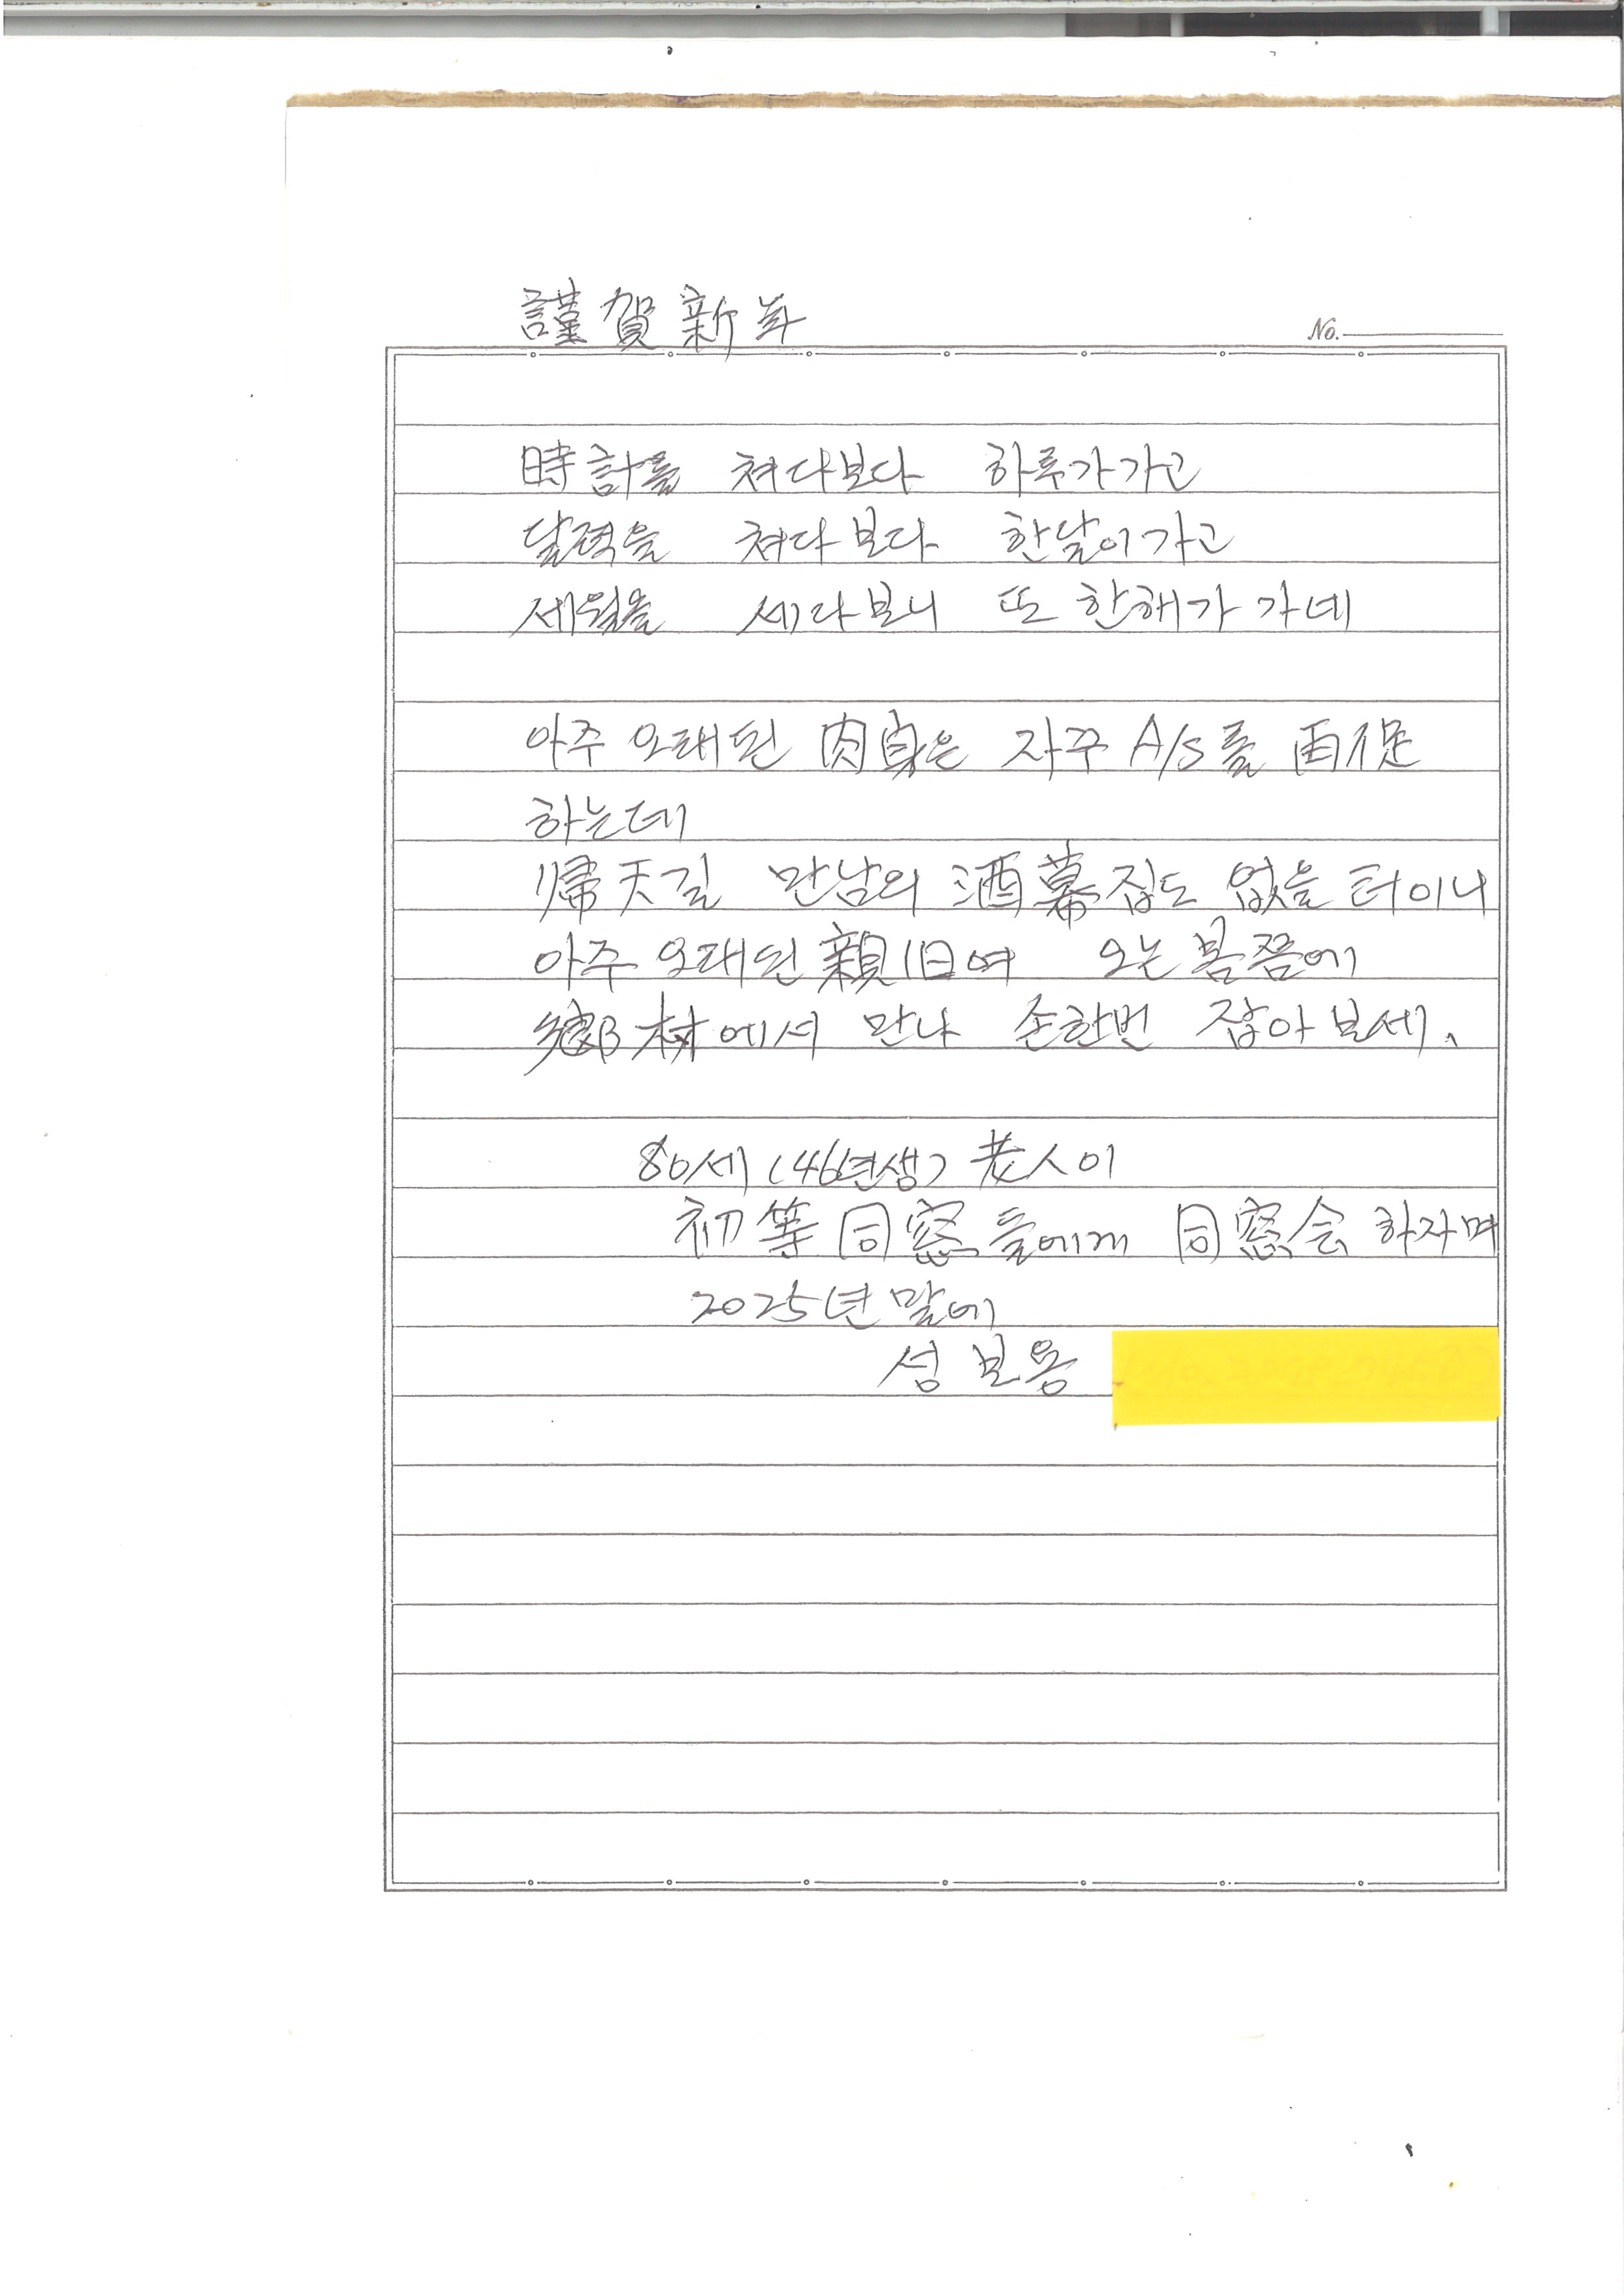 謹賀新年
No.
時計를 쳐다보다 하루가가고
달력을 쳐다보다 한달이가고
세월을 세다보니 또 한해가 가네
아주 오래된 肉身은 자꾸 A/S를 再促
하는데
歸天길 만남의 酒幕집도 없을 터이니
아주 오래된 親旧여 오는 봄쯤에
鄕村에서 만나 손한번 잡아보세.
80세(46년생) 老人이
初等同窓들에게 同窓会 하자며
2025년말에
성보용